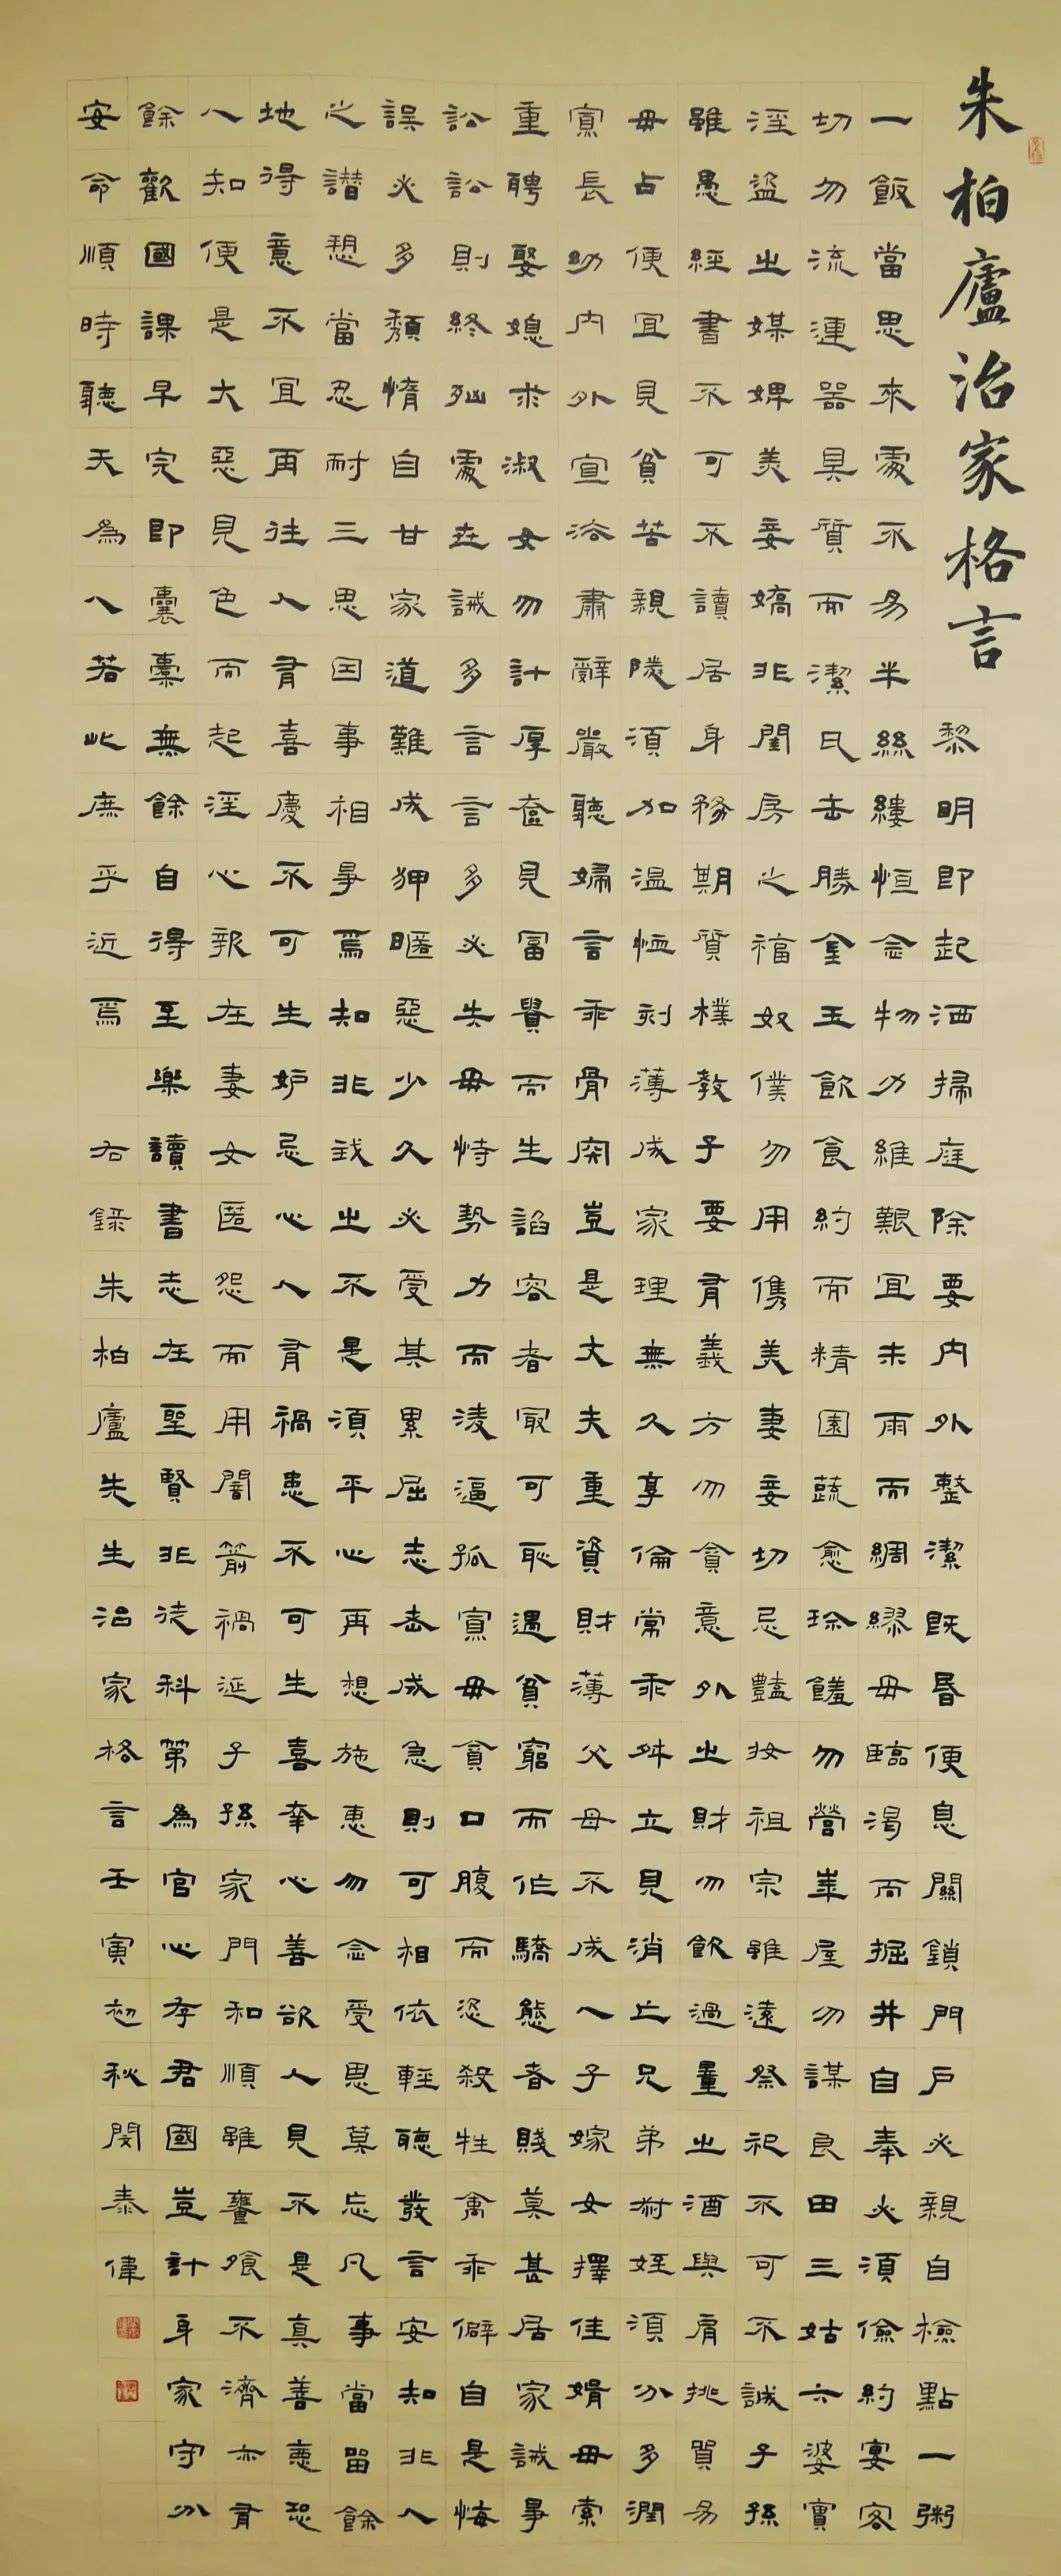 朱柏廬治家格言
黎明即起洒掃庭除要內外整潔既昏便息關鎖門戶必親自檢點一粥
一飯當思來處不易半絲縷恒念物力維艱宜未雨而綢繆毋臨渴而掘井自奉必須儉約宴客
切勿流漣器具質而潔瓦缶勝金玉飲食約而精園蔬愈珍饈勿營華屋勿謀良田三姑六婆實
淫盜之媒婢美妾嬌非閨房之福奴僕勿用儁美妻妾切忌豔妝祖宗雖遠祭祀不可不誠子孫
雖愚經書不可不讀居身務期質樸教子要有義方勿貪意外之財勿飲過量之酒與肩挑貿易
毋占便宜見貧苦親隣須加溫恤刻薄成家理無久享倫常乖舛立見消亡兄弟叔姪須分多潤
寡長幼內外宣洽肅辭嚴聽婦言乖骨肉豈是丈夫重資財薄父母不成人子嫁女擇佳婿毋索
重聘娶媳求淑女勿計厚奩見富貴而生諂容者最可恥遇貧窮而作驕態者賤莫甚居家誡爭
訟訟則終凶處世誡多言言多必失毋恃勢力而淩逼孤寡毋貪口腹而恣殺牲禽乖僻自是悔
誤必多頹惰自甘家道難成狎暱惡少久必受其累屈志老成急則可相依輕聽發言安知非人
之譖愬當忍耐三思因事相爭焉知非我之不是須平心再想施惠勿念受恩莫忘凡事當留餘
地得意不宜再往人有喜慶不可生妒忌心人有禍患不可生喜幸心善欲人見不是真善惡恐
人知便是大惡見色而起淫心報在妻女匿怨而用闇箭禍延子孫家門和順雖饔飧不濟亦有
餘歡國課早完即囊橐無餘自得至樂讀書志在聖賢非徒科第為官心存君國豈計身家守分
安命順時聽天為人若此庶乎近焉 右錄朱柏廬先生治家格言壬寅初秋閔泰偉